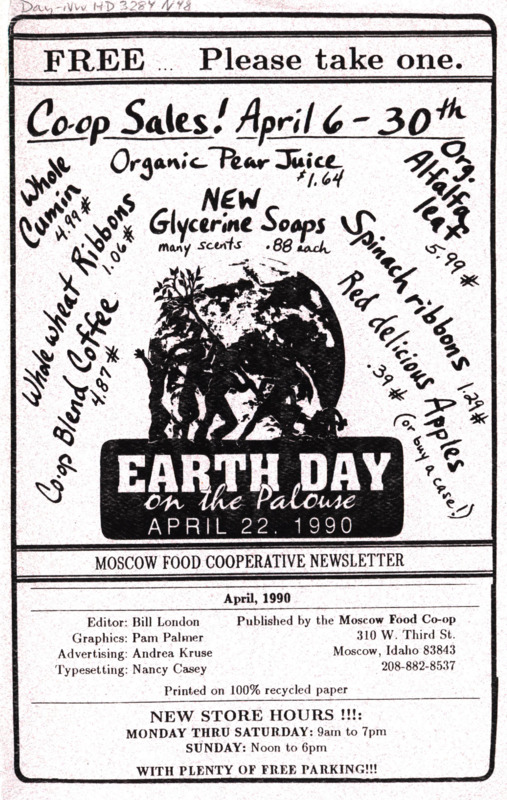 Day-NW HD 3284 N48
FREE ... Please take one.
Co-op Sales! April 6 - 30th
Organic Pear Juice
$1.64
Whole
Cumin
4.99#
NEW
Glycerine Soaps
many scents .88 each
Org.
Alfalfa
leaf
5.99#
Whole wheat Ribbons
1.06#
Co-op Blend Coffee
4.87#
Spinach ribbons
1.29#
Red delicious Apples
.39# (or buy a case!)
EARTH DAY
on the Palouse
APRIL 22, 1990
MOSCOW FOOD COOPERATIVE NEWSLETTER
April, 1990
Editor: Bill London
Graphics: Pam Palmer
Advertising: Andrea Kruse
Typesetting: Nancy Casey
Published by the Moscow Food Co-op
310 W. Third St.
Moscow, Idaho 83843
208-882-8537
Printed on 100% recycled paper
NEW STORE HOURS !!!:
MONDAY THRU SATURDAY: 9am to 7pm
SUNDAY: Noon to 6pm
WITH PLENTY OF FREE PARKING!!!